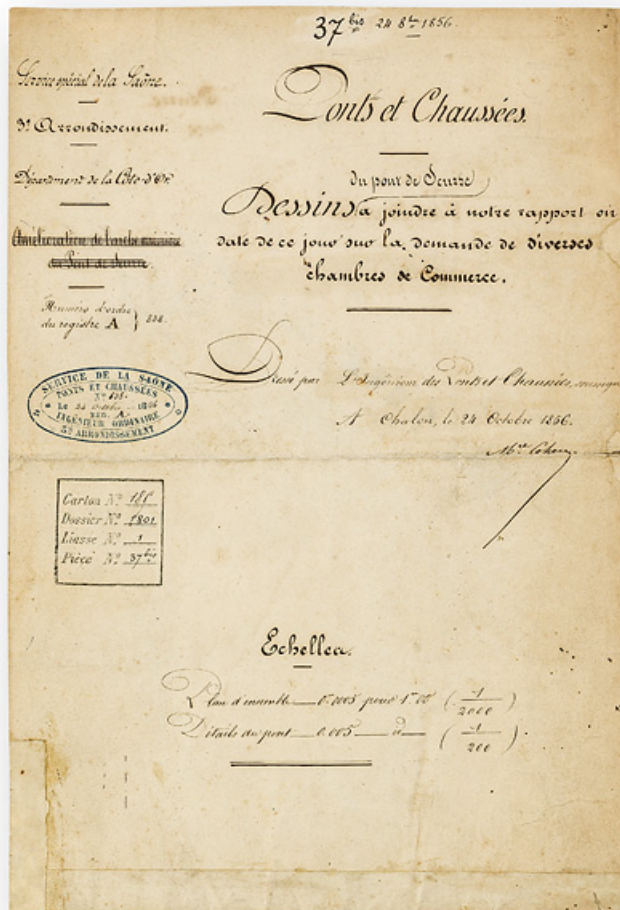 37 bis 24 8bre 1856.
Service spécial de la Saône.
3e Arrondissement.
Département de la Côte-d'Or.
Amélioration de l'arche marinière
du Pont de Seurre.
Numéro d'ordre
du registre A } 838.
SERVICE DE LA SAÔNE
PONTS ET CHAUSSÉES
Le 24 octobre 1856
INGÉNIEUR ORDINAIRE
3e ARRONDISSEMENT
Carton No 181
Dossier No 1801
Liasse No 1
Pièce No 37 bis
Ponts et Chaussées.
du pont de Seurre
Dessins à joindre à notre rapport en
date de ce jour sur la demande de diverses
chambres de Commerce.
Dressé par L'Ingénieur des Ponts et Chaussées, soussigné
A Chalon, le 24 Octobre 1856.
Echelles.
Plan d'ensemble 0m.0005 pour 1m.00 (1/2000)
Détails du pont 0.005 id (1/200)